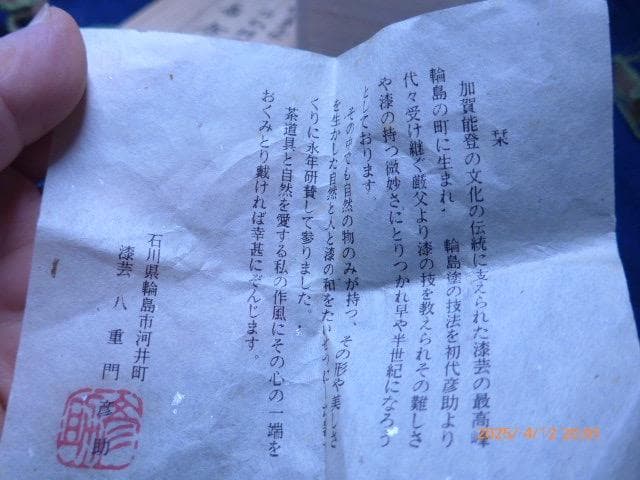 栞
加賀能登の文化の伝統に支えられた漆芸の最高峰
輪島の町に生まれ、輪島塗の技法を初代彦助より
代々受け継ぐ厳父より漆の技を教えられその難しさ
や漆の持つ微妙さにとりつかれ早や半世紀になろう
としております。
その中でも自然の物のみが持つ、その形や美しさ
を生かした自然と人と漆の和をたい
くりに永年研賛して参りました。
茶道具と自然を愛する私の作風にその心の一端を
おくみとり戴ければ幸甚にぞんじます。
石川県輪島市河井町
漆芸 八重門彦助
彦助
2025/ 4/12